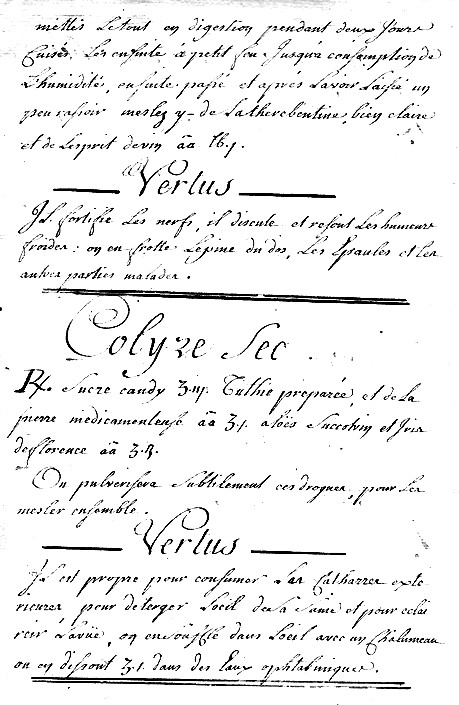 mettés le tout en digestion pendant deux Jours
Cuisés Les ensuite à petit feu Jusqu'à consomption de
L'humidité, ensuite passé et après L'avoir Laissé un
peu rassoir meslez y de La therebentine, bien claire
et de L'esprit de vin āā ℔j.
Vertus
Il fortifie Les nerfs, il discute et resout Les humeurs
froides : on en frotte L'epine du dos, Les Epaules et les
autres parties malades.
Colyre Sec.
℞. Sucre candy ʒ.iij. Tuthie preparée, et de La
pierre medicamenteuse āā ʒ.j. aloës Succotrin et Iris
de florence āā ʒ.ß.
On pulverisera Subtilement ces drogues, pour Les
mesler ensemble.
Vertus
Il est propre pour consumer Les Catharres exte
rieures, pour deterger L'oeil de Sa Sanie et pour eclai
rcir La vüe, on en souffle dans L'oeil avec un Chalumeau
ou en dissout ʒ.j. dans des Eaux ophtalmiques.